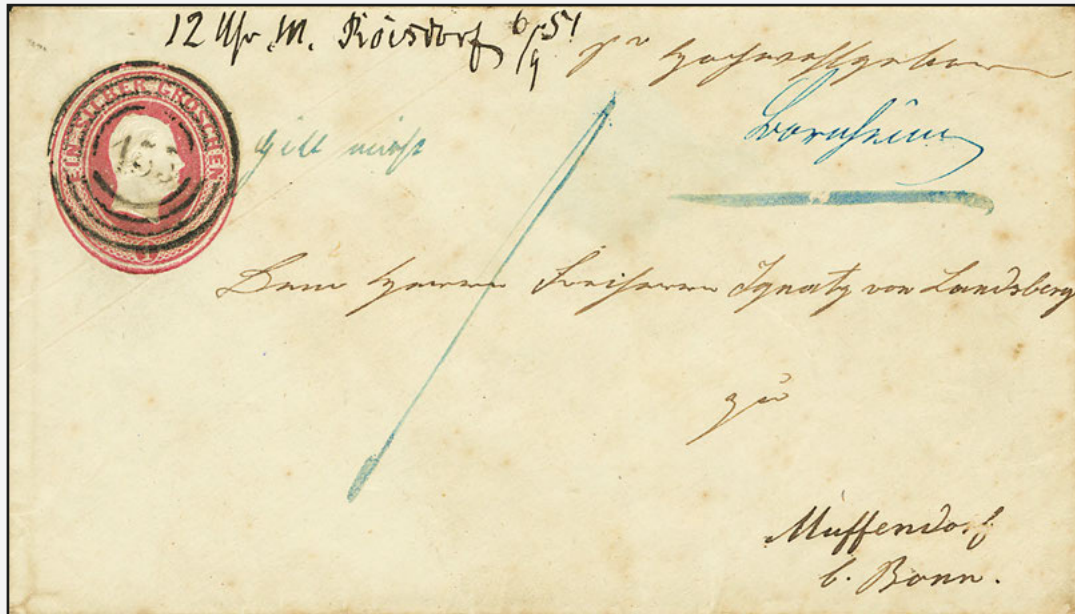 12 Uhr M. Roisdorf 6/9 51
Sr Hochwohlgeboren
EIN SILBER GROSCHEN
gilt nicht
Bornheim
Dem Herrn Freiherrn Ignatz von Landsberg
zu
Muffendorf
b. Bonn.